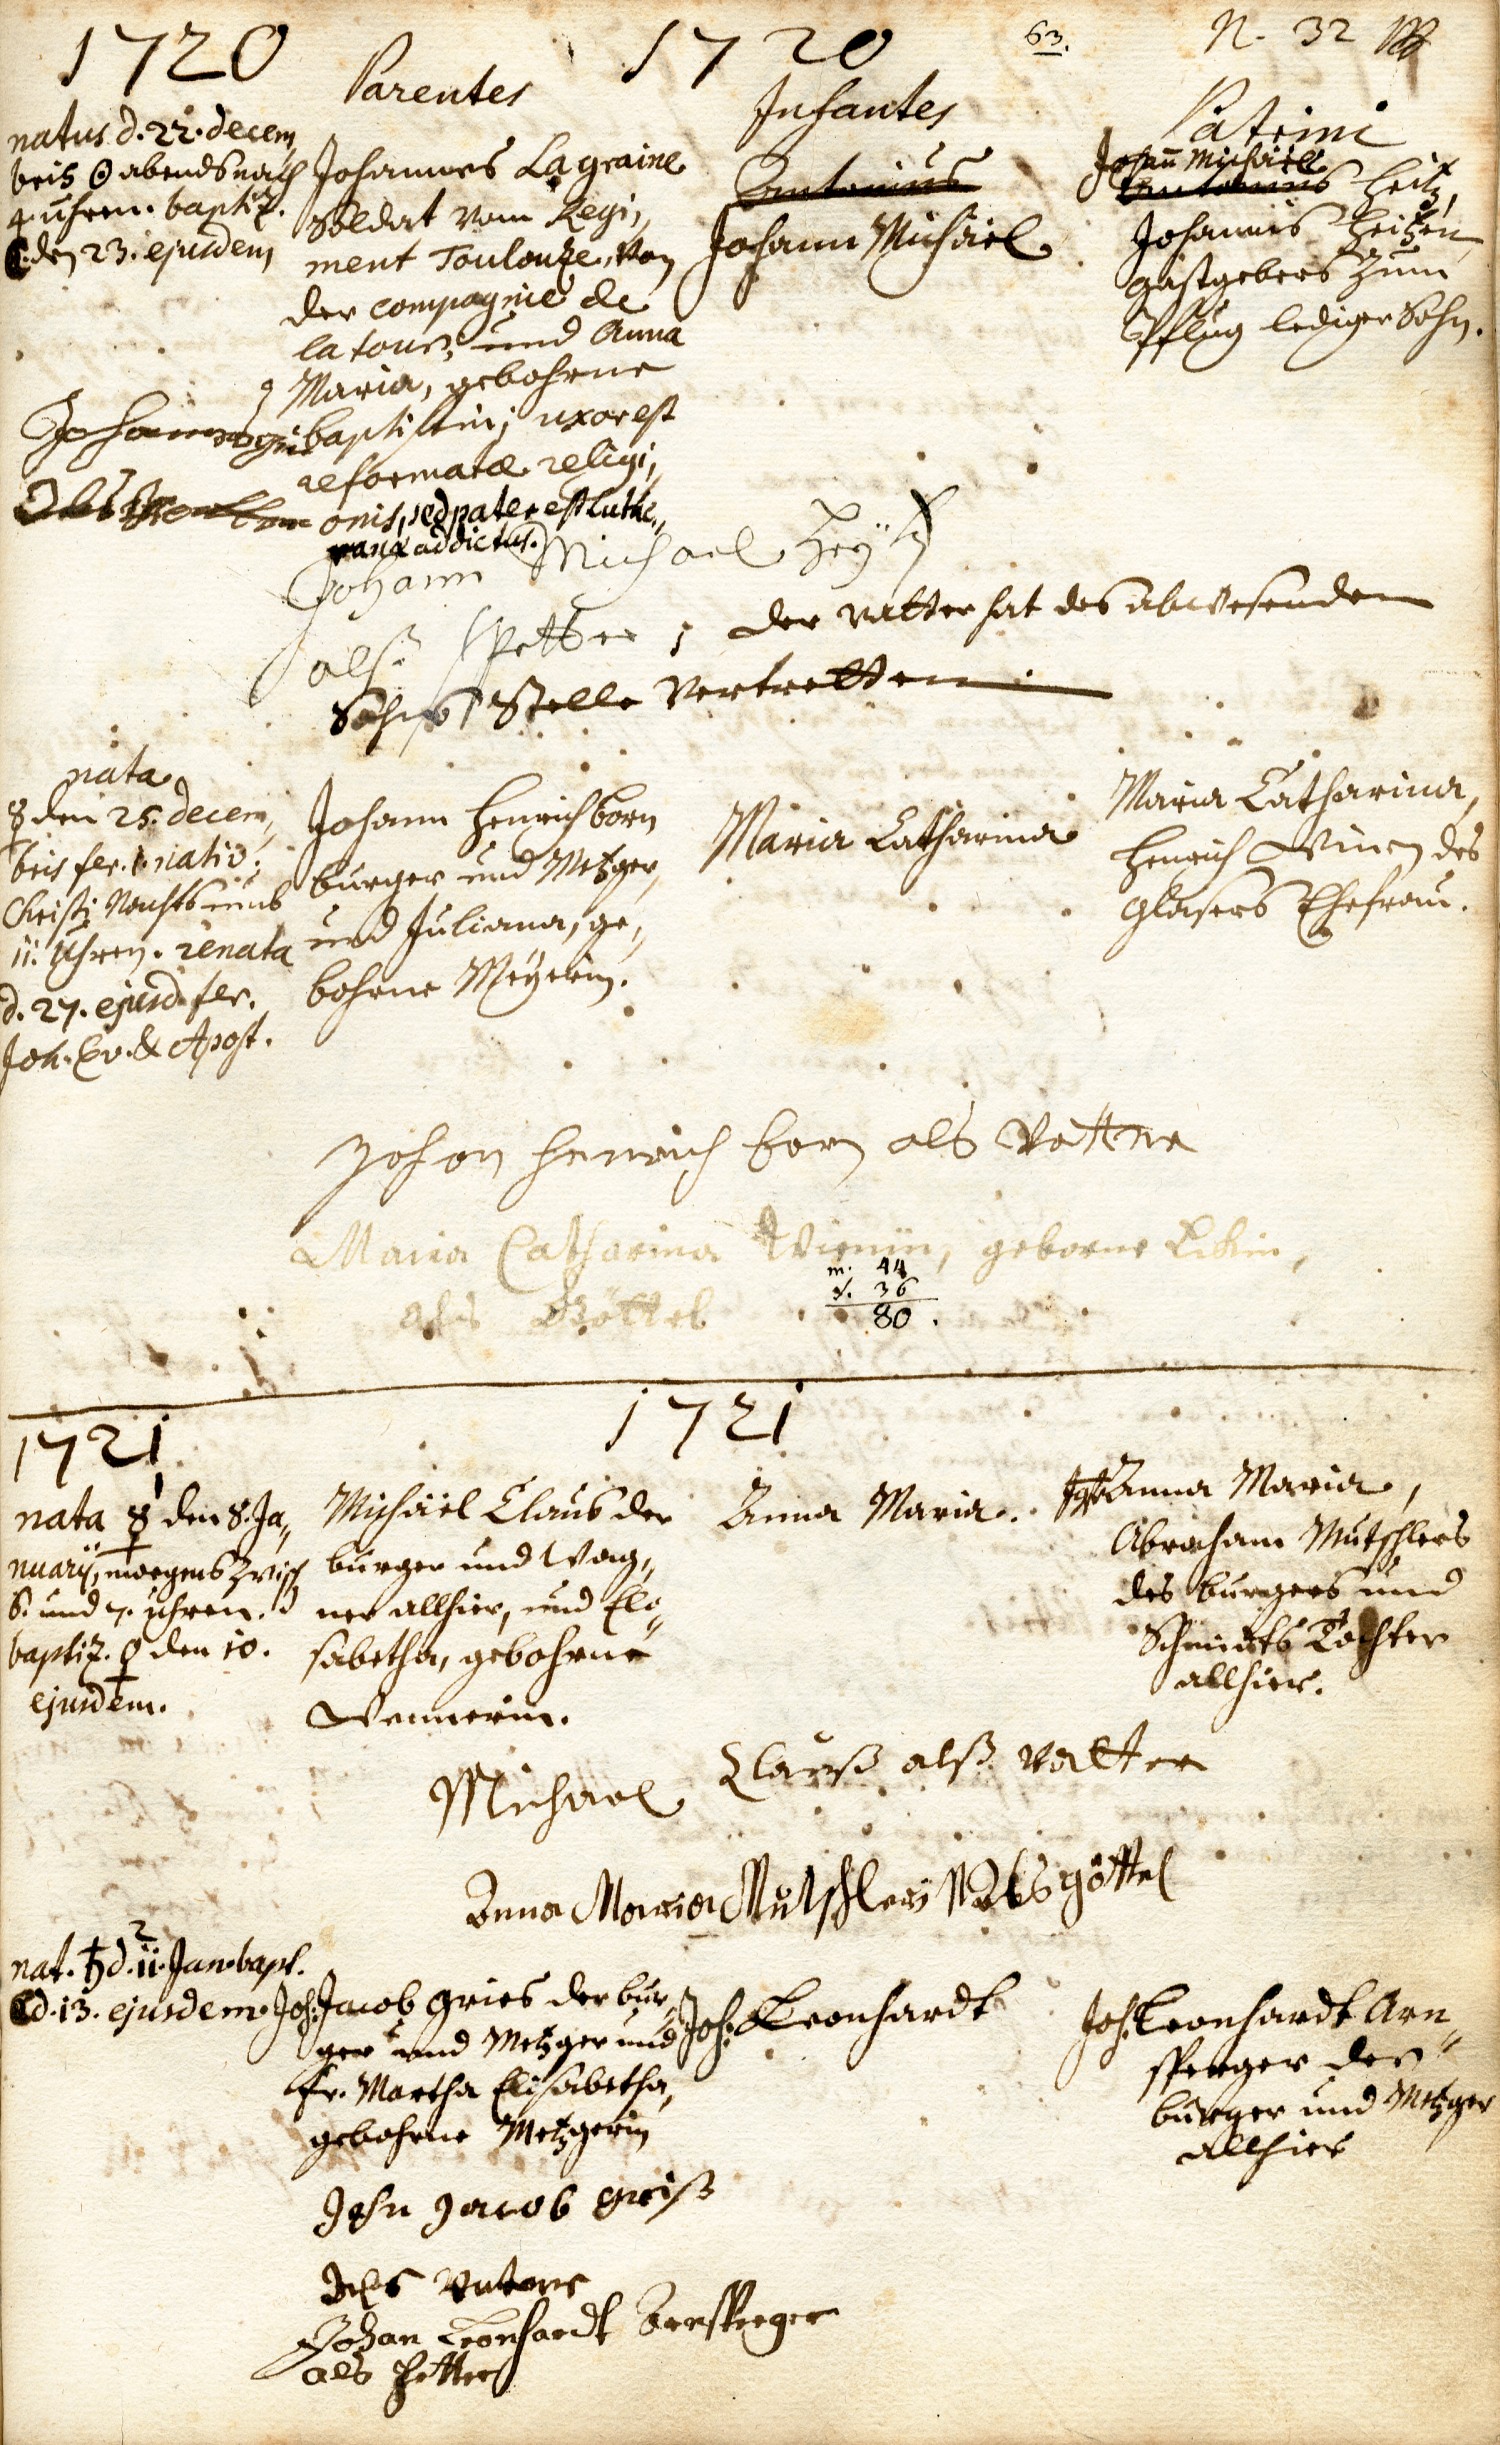 1720
1720
63.
N. 32
Parentes
Infantes
Patrini
natus d. 22. decem,
bris ☉ abends nach
4 uhren. baptiz.
☾ den 23. ejusdem
Johannes Lagraine
Soldat vom Regi,
ment Toulouze, von
der compagnie de
la tour, und Anna
Maria, gebohrne
baptistin; uxor est
reformatæ religi,
onis, sed pater est Luthe,,
ranæ addictus.
Antonius
Johann Michäel
Johann Michäel
Antonius Heitz,
Johannis Heitzen
gastgebers zum
Pflug lediger Sohn.
Johannes
Als
Johann Michael Heÿtz
alß Pfetter; der vatter hat des abwesenden
Sohns Stelle vertretten
nata
☿ den 25. decem,
bris fer. 1. nativ.
Christi Nachts umb
11. Uhren. renata
d. 27. ejusd. fer.
Joh. Ev. & Apost.
Johann Henrich born
burger und Metzger,
und Juliana, ge,
bohrne Meÿerin.
Maria Catharina
Maria Catharina,
Henrich des
glasers Ehefrau.
Johan Henrich born als Vatter
Maria Catharina geborne
als Göttel
m. 44
f. 36
80.
1721
1721
nata ☿ den 8. Ja,,
nuarÿ, morgens zwisch
6. und 7. uhren.
baptiz. ♀ den 10.
ejusdem.
Michäel Claus der
burger und Wag,
ner allhier, und Eli,
sabetha, gebohrne
Wennerin.
Anna Maria.
Anna Maria,
Abraham Mutschlers
des burgers und
Schmidts Tochter
allhier.
Michael Clauß alß vatter
Anna Maria Mutschleri Als göttel
2
nat. ♄ d. 11. Jan. bapt.
☾ d. 13. ejusdem.
Joh: Jacob Gries der bur,
ger und Metzger und
fr. Martha Elisabetha,
gebohrne Metzgerin
Joh: Leonhardt
Joh: Leonhardt Arn,,
sperger der
burger und Metzger
allhier
John Jacob grieß
Als Vatter
Johan Leonhardt Arnsperger
als Petter